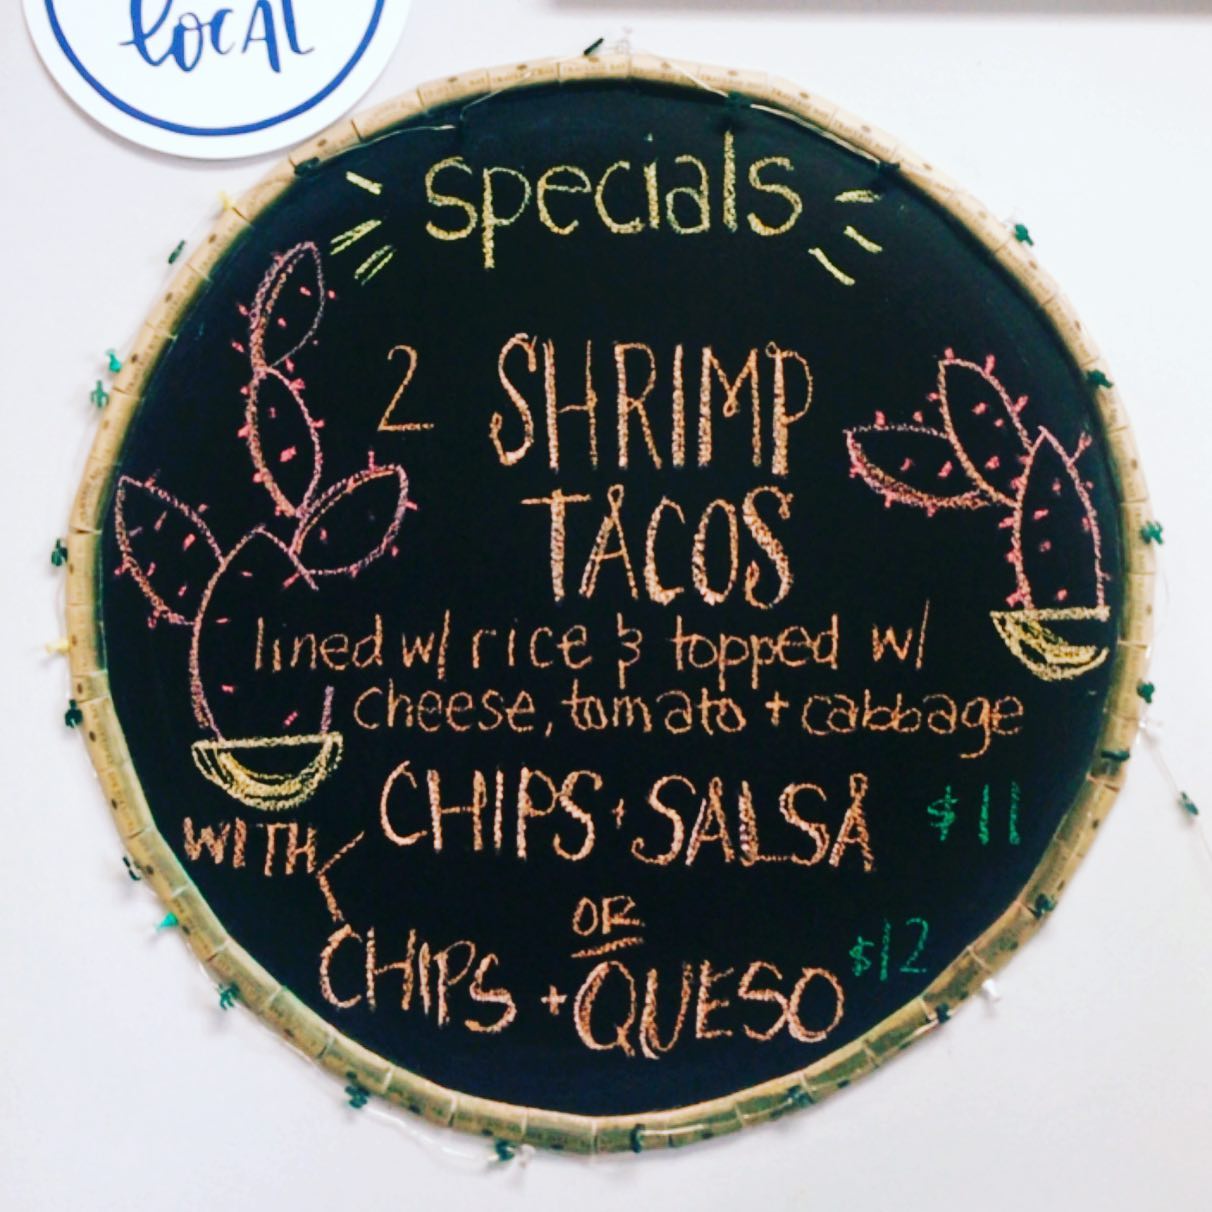 local
specials
2 SHRIMP
TACOS
lined w/ rice & topped w/
cheese, tomato + cabbage
WITH
CHIPS + SALSA $11
OR
CHIPS + QUESO $12